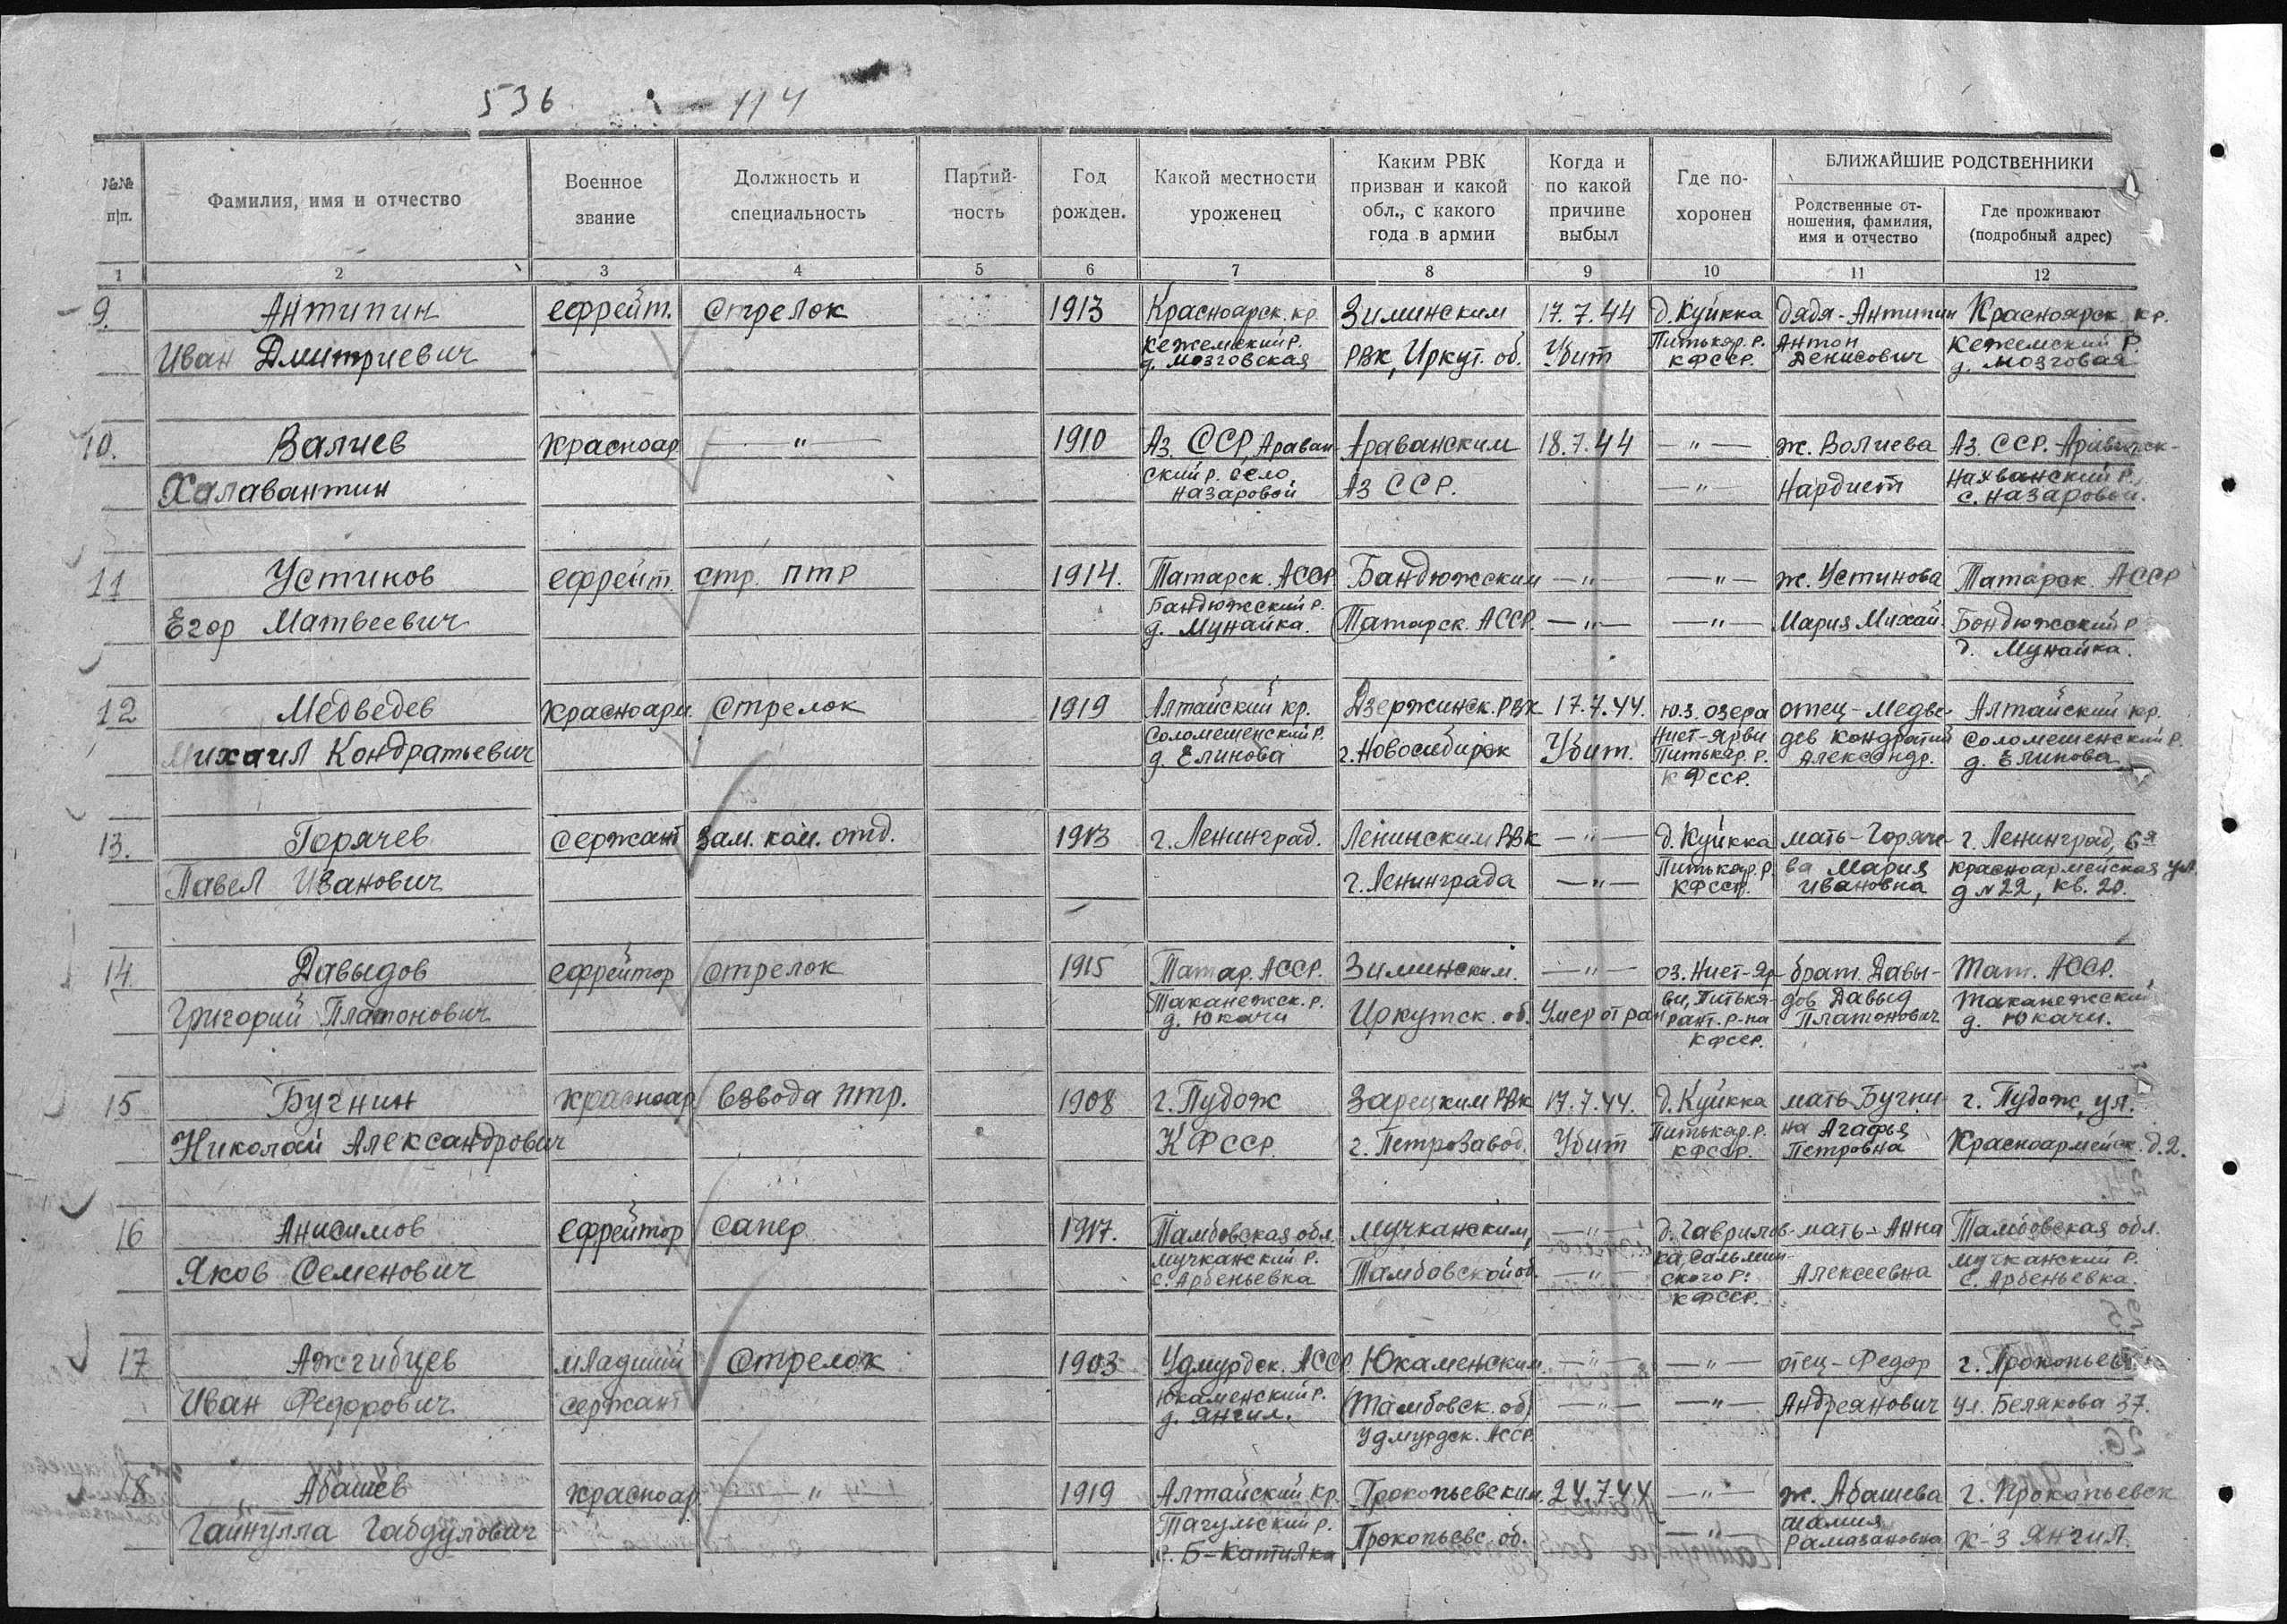 536 114
№№ п|п.
Фамилия, имя и отчество
Военное звание
Должность и специальность
Партий-ность
Год рожден.
Какой местности уроженец
Каким РВК призван и какой обл., с какого года в армии
Когда и по какой причине выбыл
Где по-хоронен
БЛИЖАЙШИЕ РОДСТВЕННИКИ
Родственные от-ношения, фамилия, имя и отчество
Где проживают (подробный адрес)
1 2 3 4 5 6 7 8 9 10 11 12
9. Антипин ефрейт. Стрелок 1913 Красноарск. кр. Зиминским 17.7.44 д. Куйкка дядя-Антипин Красноярск кр.
Иван Дмитриевич Кежемский р. РВК, Иркут. об. Убит Питькяр. р. Антон Кежемский р.
д. Мозговская КФССР. Денисович д. Мозговая
10. Валиев красноар — " — 1910 Аз. ССР, Араван- Араванским 18.7.44 — " — ж. Волиева Аз. ССР.
Халавантин ский р. село Аз ССР. — " — Нардист
Назаровой с. Назаровой.
11 Устинов ефрейт. стр. ПТР 1914. Татарск. АССР Бандюжским — " — — " — ж. Устинова Татарск. АССР
Егор Матвеевич Бандюжский р. Татарск. АССР. — " — — " — Мария Михай. Бондюжский р
д. Мунайка. д. Мунайка.
12 Медведев Красноарм. Стрелок 1919 Алтайский кр. Дзержинск. РВК 17.7.44. ю.з. озера отец-Медве- Алтайский кр.
Михаил Кондратьевич Соломешенский р. г. Новосибирск Убит. Ниет-Ярви дев Кондратий Соломешенский р.
д. Елинова Питькяр. р. Александр. д. Елинова
КФССР.
13. Горячев Сержант Зам. ком. отд. 1913 г. Ленинград. Ленинским РВК — " — д. Куйкка мать-Горяче- г. Ленинград, 6я
Павел Иванович г. Ленинграда — " — Питькяр. р. ва Мария Красноармейская ул.
КФССР. Ивановна д №22, кв. 20.
14. Давыдов ефрейтор стрелок 1915 Татар. АССР. Зиминским. — " — оз. Ниет-Яр- брат. Давы- Тат. АССР.
Григорий Платонович Таканежск. р. Иркутск. об. Умер от ран ви, Питькя- дов Давыд Таканежский
д. Юкачи рант. р-на Платонович д. Юкачи.
КФССР.
15 Бучнин красноар взвода птр. 1908 г. Пудож Зарецким РВК 17.7.44. д. Куйкка мать Бучни- г. Пудож, ул.
Николай Александрович КФССР. г. Петрозавод. Убит Питькяр. р. на Агафья Красноармейск. д. 2.
КФССР. Петровна
16 Анисимов ефрейтор сапер 1917. Тамбовская обл. Мучканским, — " — д. Гаврилов- мать-Анна Тамбовская обл.
Яков Семенович Мучканский р. Тамбовской об. — " — ка, Сальмин- Алексеевна Мучканский р.
с. Арбеньевка ского р. с. Арбеньевка.
КФССР.
17 Ажгибцев младший Стрелок 1903 Удмурдск. АССР. Юкаменским — " — — " — отец-Федор г. Прокопьев
Иван Федорович. сержант Юкаменский р. Тамбовск. об. — " — — " — Андреанович ул. Белякова 37.
д. Янгил. Удмурдск. АССР.
18 Абашев красноар. — " — 1919 Алтайский кр. Прокопьевским. 24.7.44 — " — ж. Абашева г. Прокопьевск
Гайнулла Габдулович Тагульский р. Прокопьевс. об. — " — Шамия к-з Янгил.
с. Б-Каптилка Рамазановна